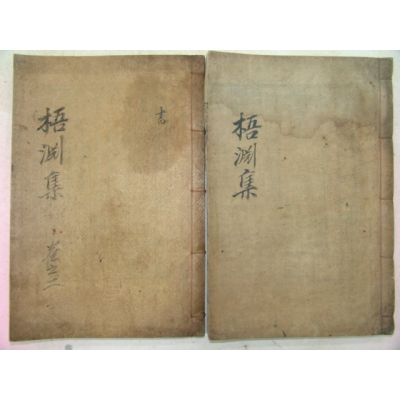 梧渊集
卷之二
書
梧渊集